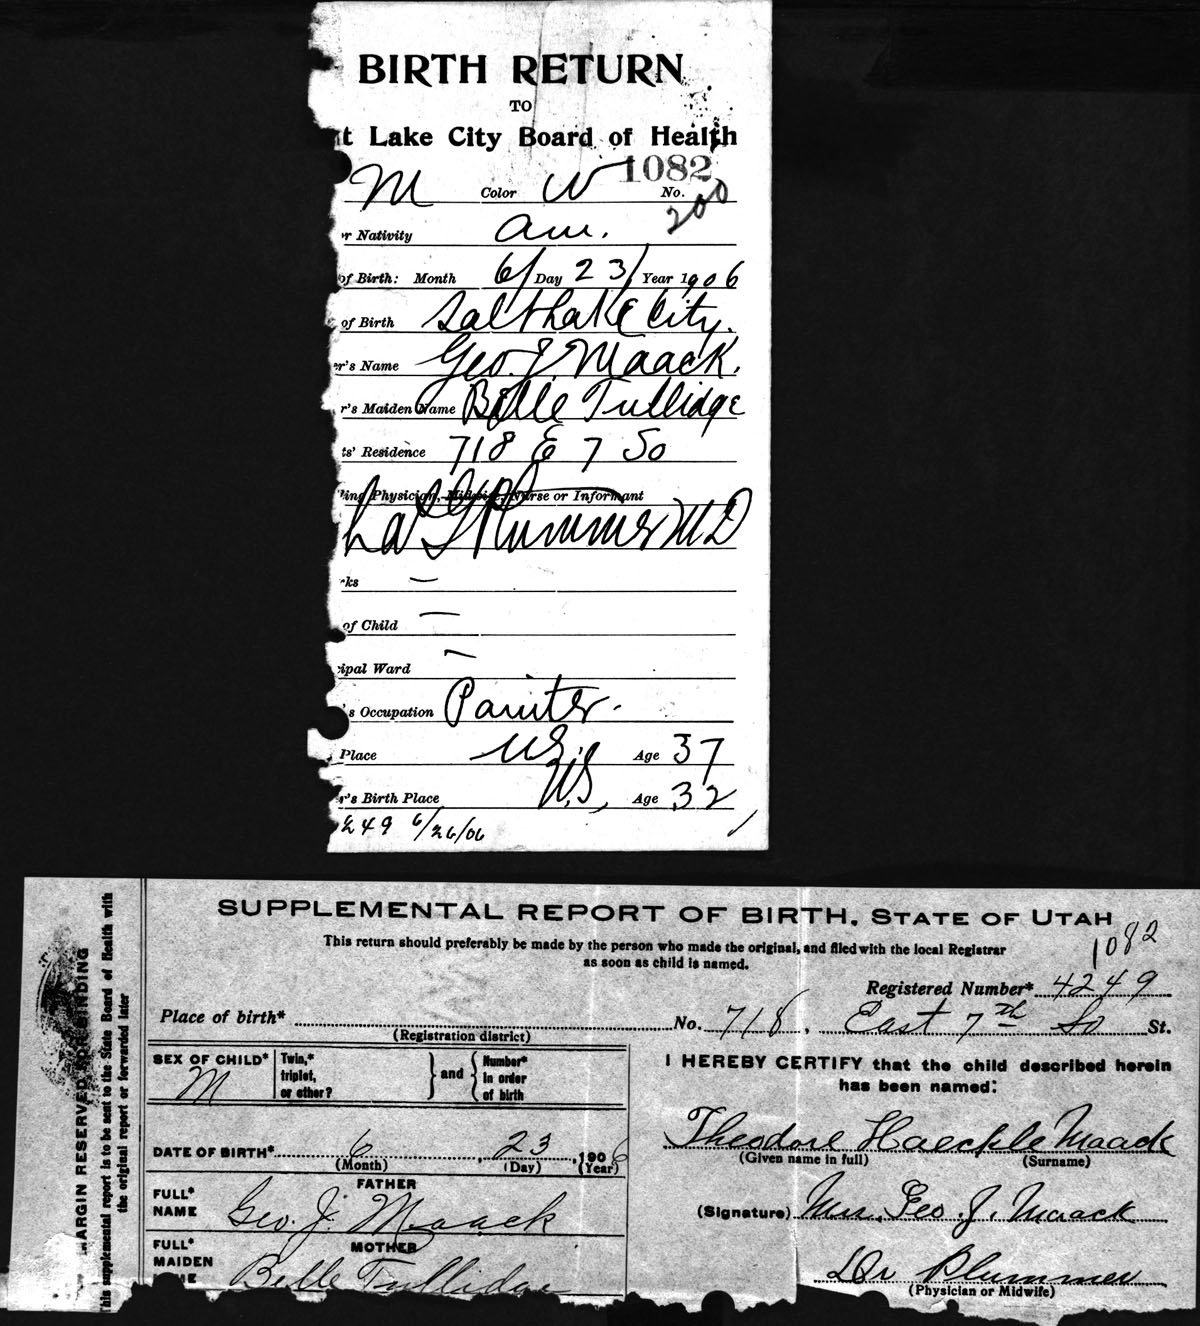 BIRTH RETURN
TO
t Lake City Board of Health
1082
M Color W No.
200
r Nativity Am.
of Birth: Month 6/ Day 23/ Year 1906
of Birth Salt Lake City.
r's Name Geo. J. Maack.
r's Maiden Name Belle Tullidge
ts' Residence 718 E 7 So
ing Physician, Midwife, Nurse or Informant
has G Plummer MD
rks —
of Child —
cipal Ward —
's Occupation Painter.
Place U.S. Age 37
r's Birth Place U.S. Age 32
249 6/26/06
SUPPLEMENTAL REPORT OF BIRTH, STATE OF UTAH
1082
This return should preferably be made by the person who made the original, and filed with the local Registrar
as soon as child is named.
Registered Number* 4249
Place of birth* No. 718, East 7th So St.
(Registration district)
SEX OF CHILD* M
Twin,* triplet, or other? } and { Number* in order of birth
DATE OF BIRTH* 6 23, 1906
(Month) (Day) (Year)
FATHER
FULL* NAME Geo. J. Maack
MOTHER
FULL* MAIDEN ME Belle Tullidge
I HEREBY CERTIFY that the child described herein
has been named:
Theodore Haeckle Maack
(Given name in full) (Surname)
(Signature) Mrs. Geo. J. Maack
Dr Plummer
(Physician or Midwife)
MARGIN RESERVED FOR BINDING
This supplemental report is to be sent to the State Board of Health with
the original report or forwarded later